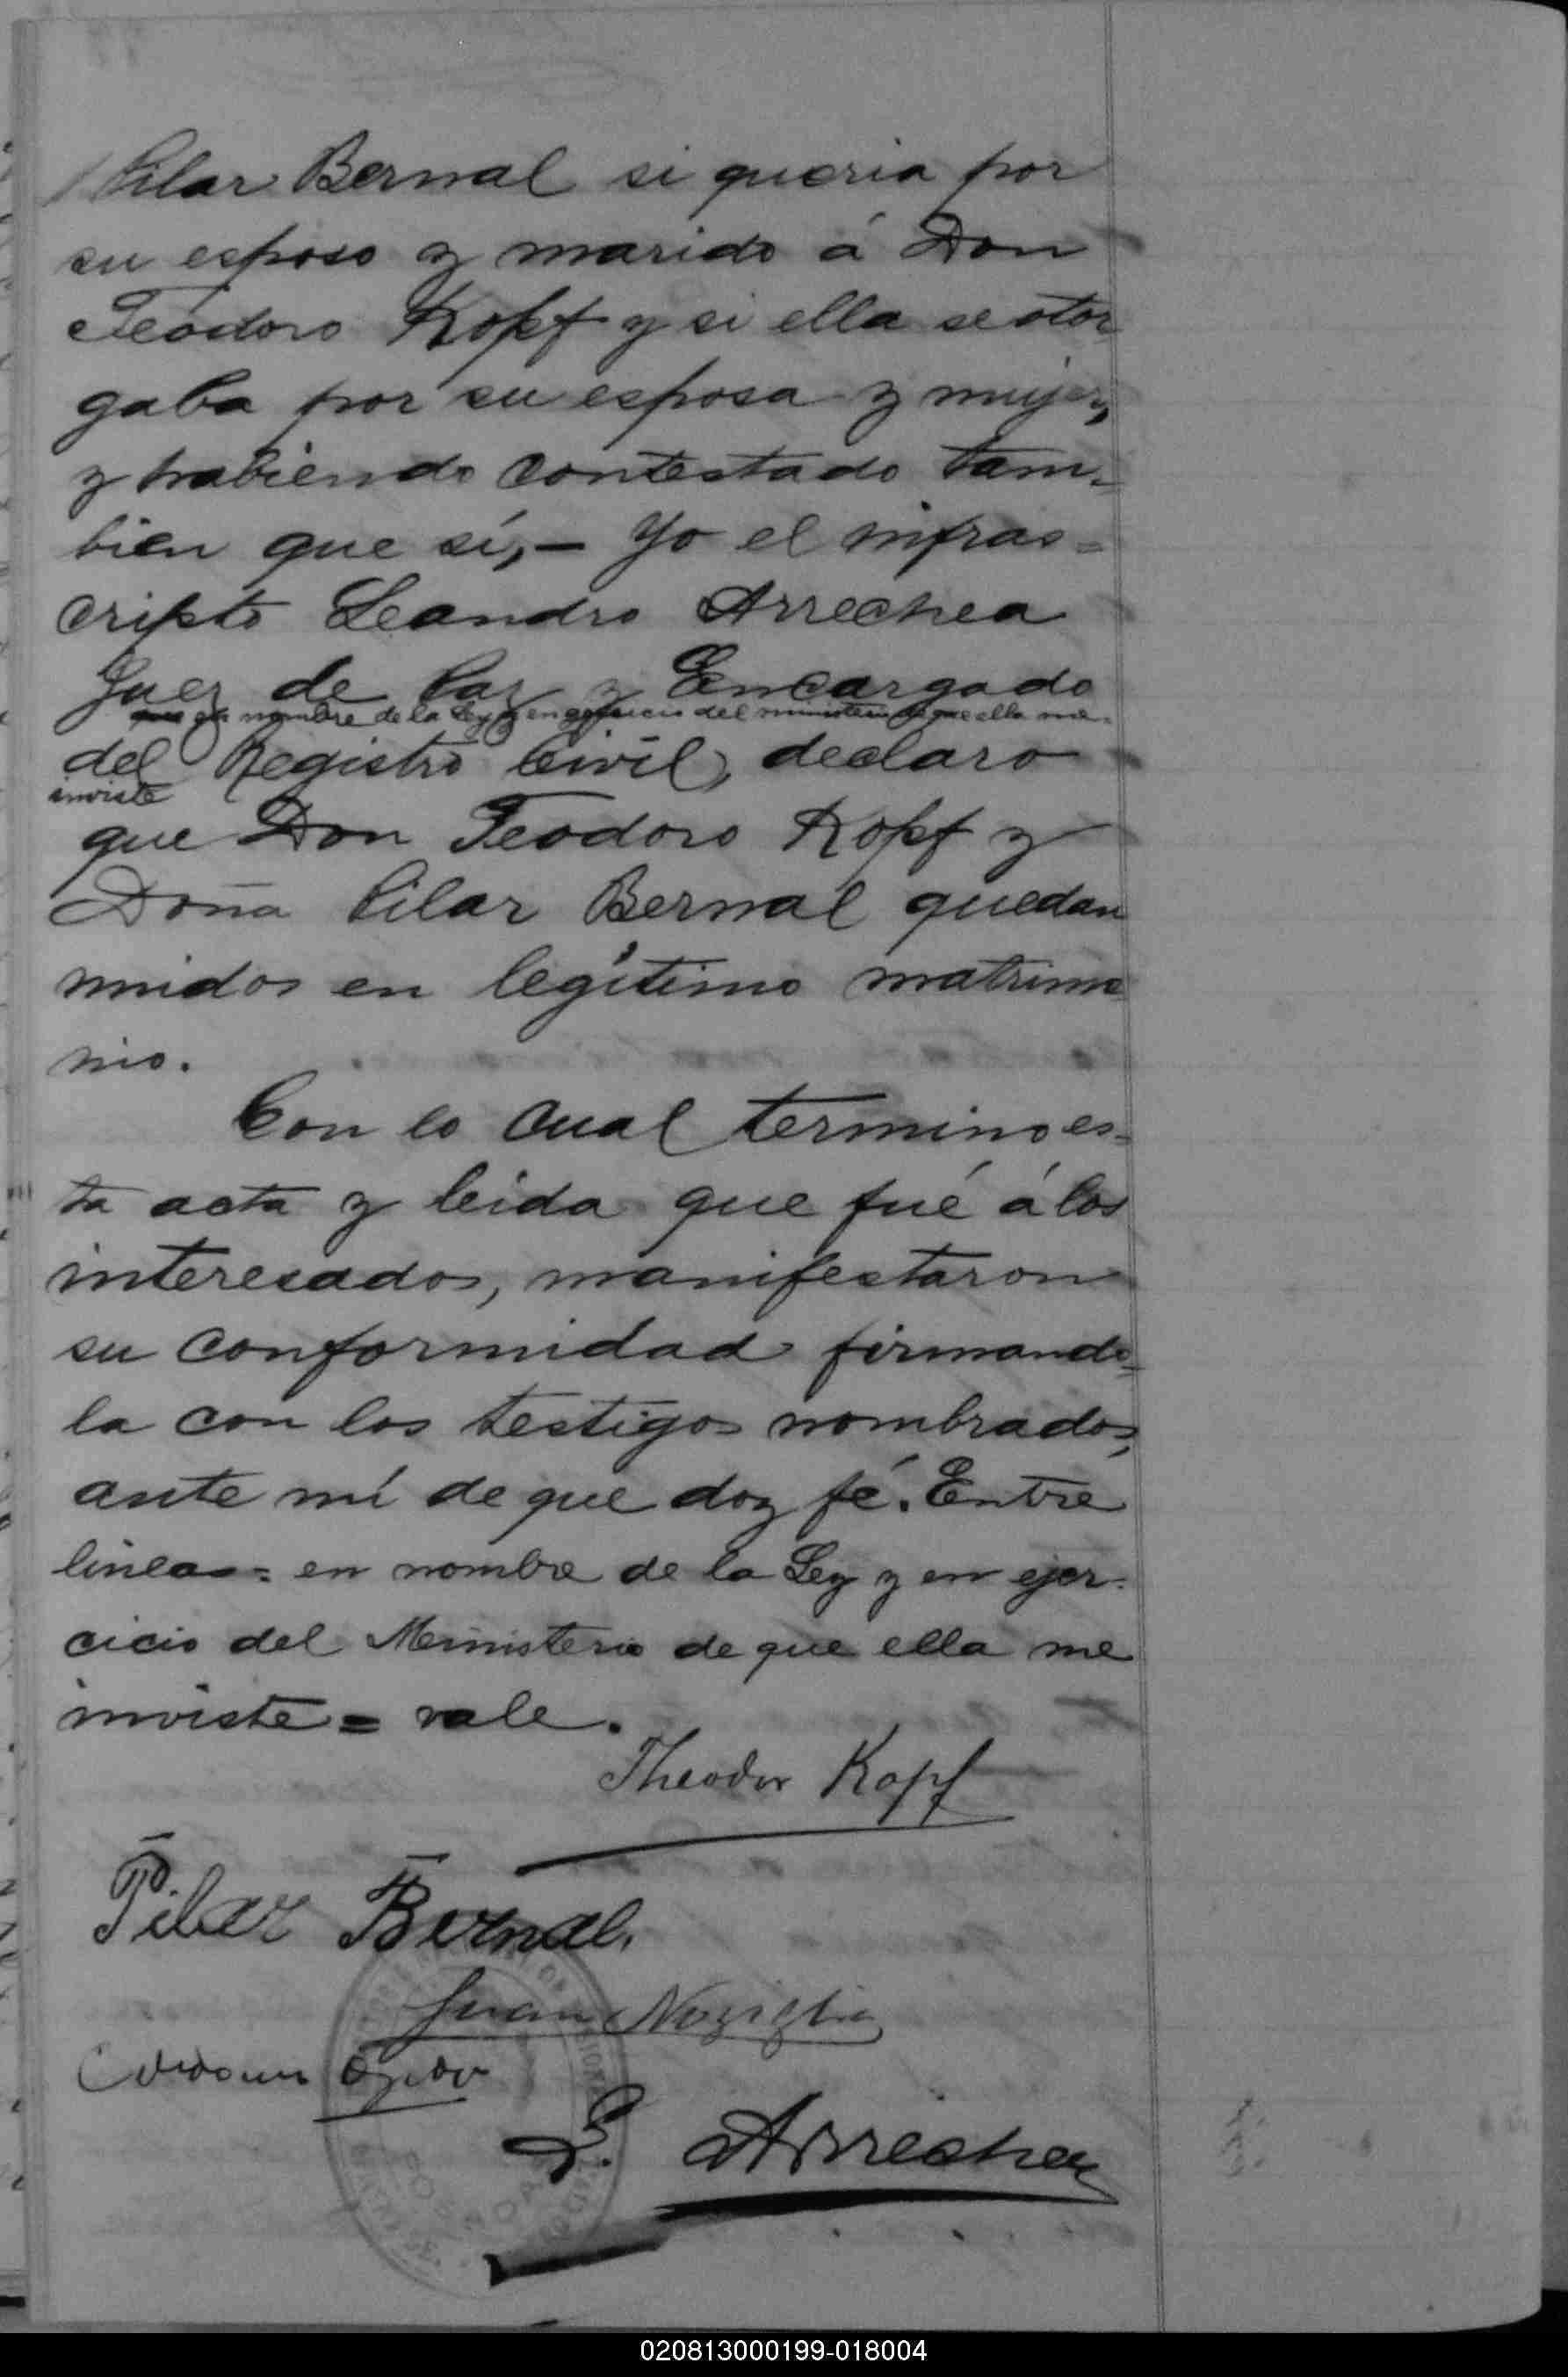 Pilar Bernal si queria por
su esposo y marido á Don
Teodoro Kopf y si ella se otor
gaba por su esposa y mujer,
y habiendo contestado tam-
bien que sí,- Yo el infras=
cripto Leandro Arrechea
Juez de Paz y Encargado
en nombre de la Ley y en ejercicio del ministerio de que ella me
del Registro Civil, declaro
inviste
que Don Teodoro Kopf y
Doña Pilar Bernal quedan
unidos en legítimo matrimo
nio.
Con lo cual termino es=
ta acta y leida que fué á los
interesados, manifestaron
su conformidad firmando=
la con los testigos nombrados,
ante mí de que doy fé. Entre
lineas= en nombre de la Ley y en ejer-
cicio del Ministerio de que ella me
inviste = vale.
Theodor Kopf
Pilar Bernal.
Juan
L. Arrechea
020813000199-018004